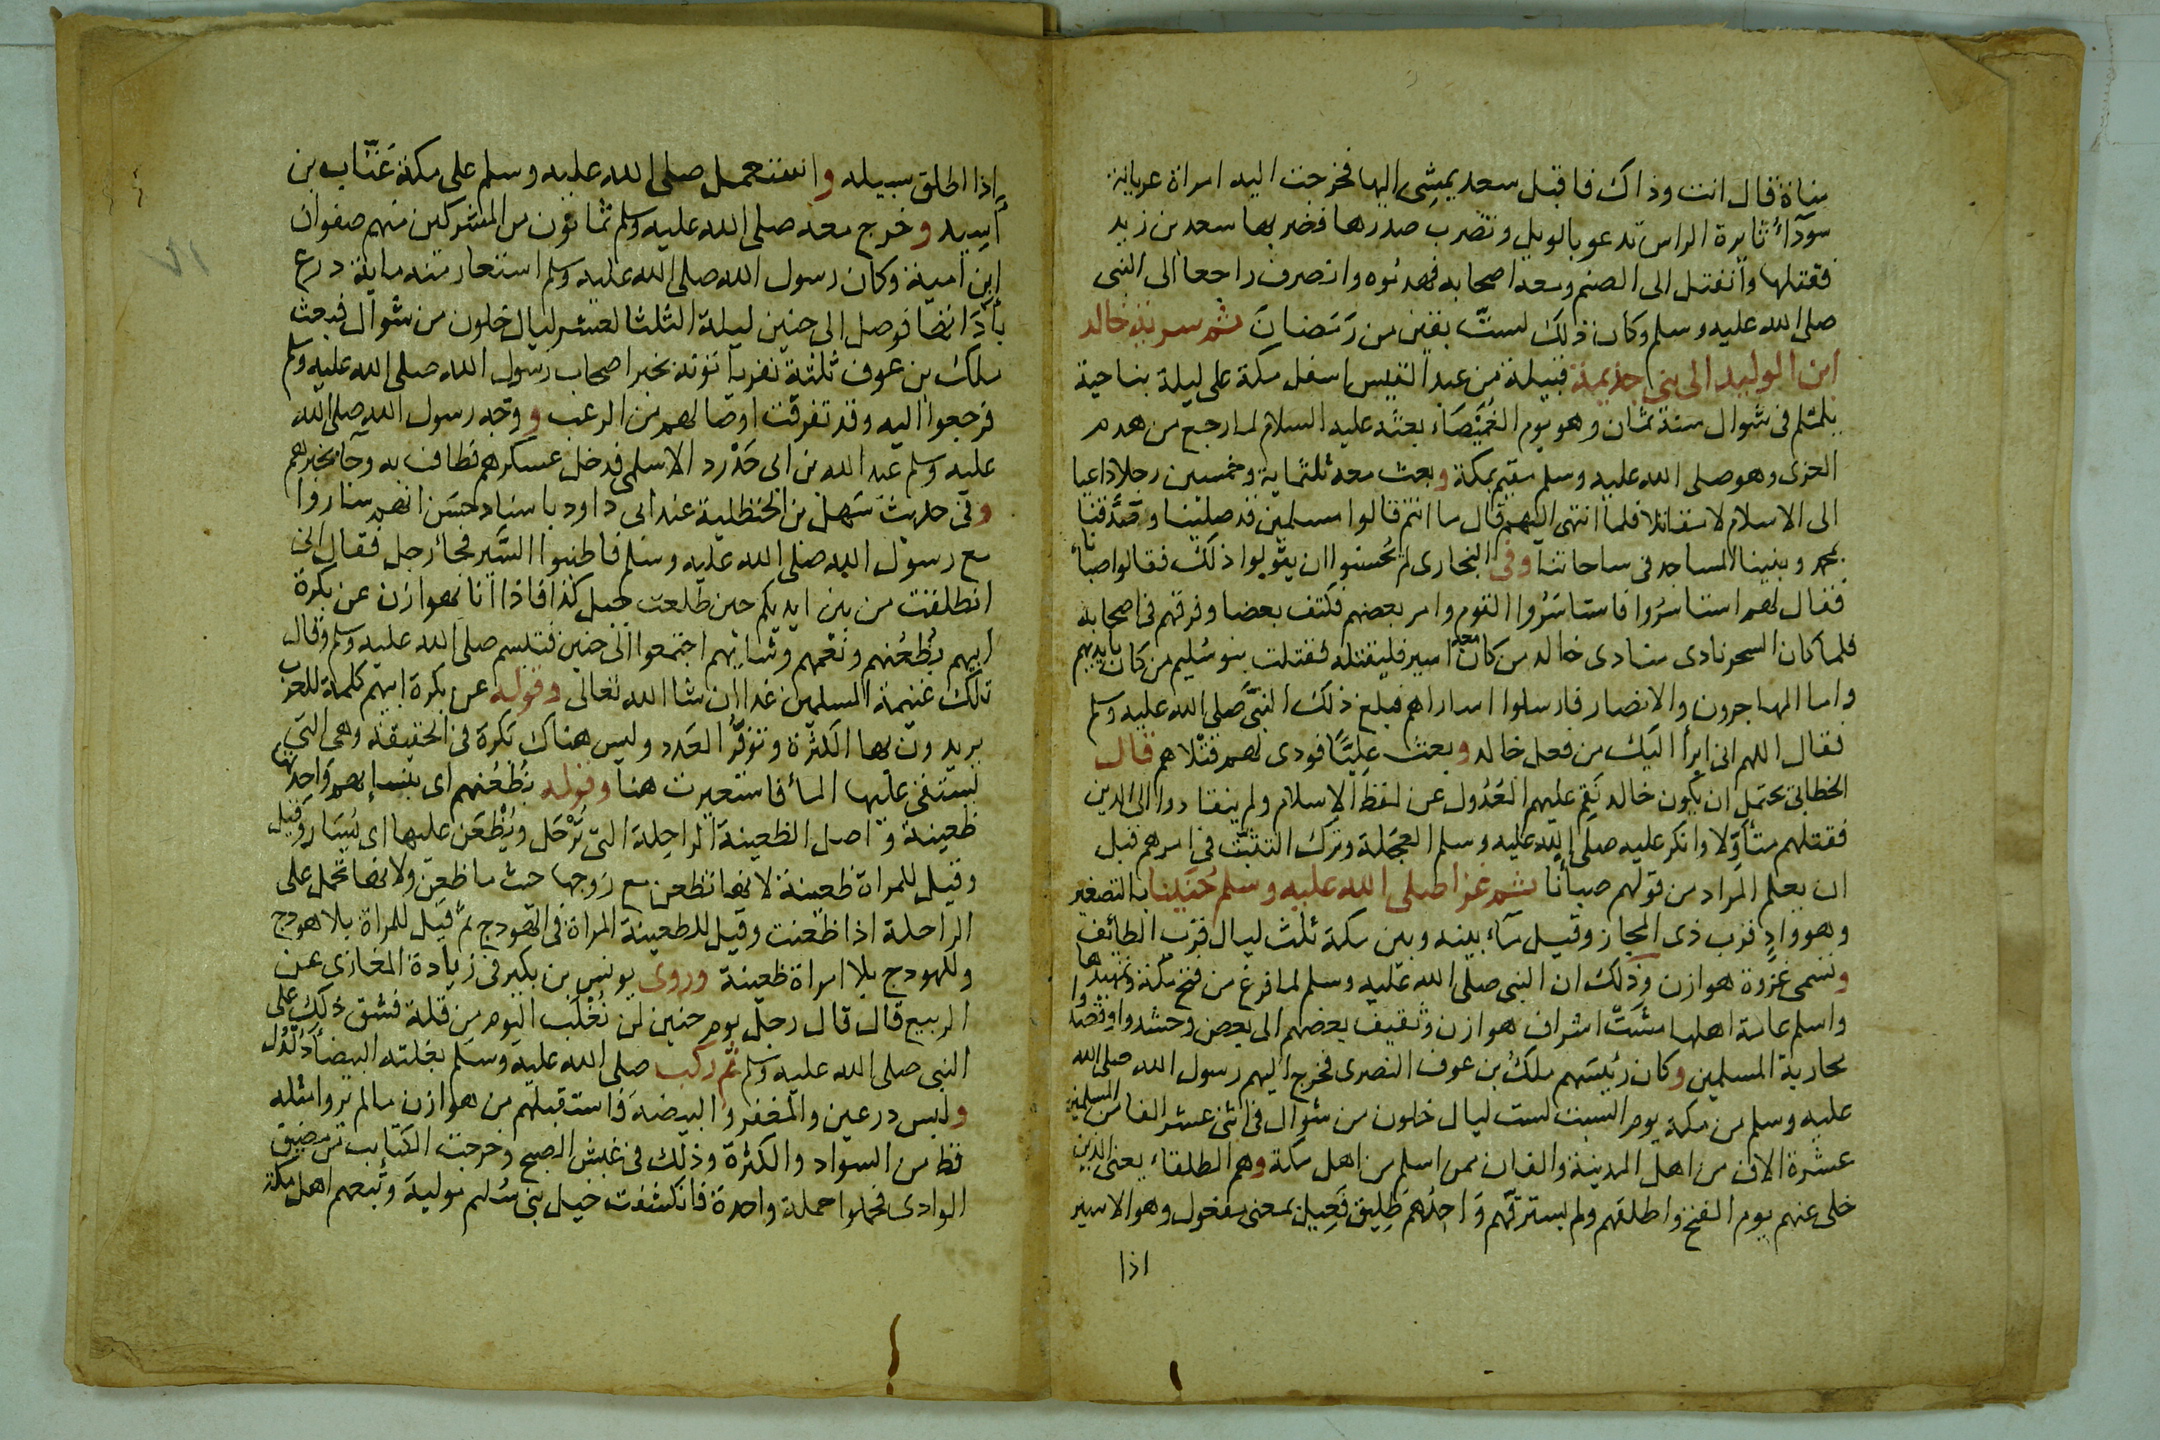 مناة قال انت وذاك فاقبل سعد يمشى اليها فخرجت اليه امراة عريانة
سودآء ثايرة الراس تدعو بالويل وتضرب صدرها فضربها سعد بن زيد
فقتلها وأنفتل الى الصنم ومعه اصحابه فهدموه وانصرف راجعا الى النبى
صلى الله عليه وسلم وكان ذلك لستّ بقين من رَمَضانَ ثم سرية خالد
ابن الوليد الى بنى جذيمة قبيلة من عبد القيس اسفل مكة على ليلة بناحية
يلملم فى شوال سنة ثمان وهو يوم الغُمَيْصَاء بعثه عليه السلام لما رجع من هدم
العزى وهو صلى الله عليه وسلم مقيم بمكة وبعث معه ثلثماية وخمسين رجلا داعيا
الى الاسلام لا مقاتلا فلما انتهى اليهم قال ما انتم قالوا مسلمين قد صلينا وصَدَّقنا
بمحمد وبنينا المساجد فى ساحاتنا وفى البخارى لم يُحسنوا ان يقولوا ذلك فقالوا صبأنا
فقال لهم استاسرُوا فاستاسَرُوا القوم وامر بعضهم فكتف بعضا وفرقهم فى اصحابه
فلما كان السحر نادى منادى خالد من كان معه اسير فليقتله فقتلت بنو سُليم من كان بايديهم
واما المهاجرون والانصار فارسلوا اساراهم فبلغ ذلك النبىَّ صلى الله عليه وسلم
فقال اللهم انى ابرأ اليك من فعل خالد وبعث عليًّا فودى لهم قتْلاهم قال
الخطابى يحتمل ان يكون خالد نَقِم عليهم العُدُول عن لفظ الإسلام ولم ينقادوا الى الدين
فقتلهم متأوِّلا وانكر عليه صلى الله عليه وسلم العَجَلة وتَرْك التثبّت فى امرهم قبل
ان يعلم المُراد من قولهم صبأنا ثم غزا صلى الله عليه وسلم حُنَينا بالتصغير
وهو وادٍ قرب ذى المجاز وقيل مآء بينه وبين مكة ثلث ليال قرب الطائف
وتسمى غزوة هوازن وذلك ان النبى صلى الله عليه وسلم لما فرغ من فتح مكة وتمهيدها
واسلم عامة اهلها مشَتْ اشراف هوازن وثقيف بعضهم الى بعض وحشدوا وقصدوا
محاربة المسلمين وكان رئيسَهم ملكُ بن عوف النصرى فخرج اليهم رسول الله صلى الله
عليه وسلم من مكة يوم السبت لست ليال خلون من شوال فى اثنى عشر الفا من المسلمين
عشرة الاف من اهل المدينة والفان ممن اسلم من اهل مكة وهم الطلقاء يعنى الذين
خلى عنهم يوم الفتح واطلقهم ولم يسترقّهم وَاحِدُهم طَليق فَعِيل بمعنى مفعول وهو الاسير
اذا
اذا اطلق سبيله واستعمل صلى الله عليه وسلم على مكة عَتّاب بن
أسِيد وخرج معه صلى الله عليه وسلم ثمانون من المشركين منهم صفوان
ابن امية وكان رسول الله صلى الله عليه وسلم استعار منه ماية درع
بأدَاتها فوصل الى حنين ليلة الثلثا لعشر ليال خلون من شوال فبعث
ملك بن عوف ثلثة نفر يأتونه بخبر اصحاب رسول الله صلى الله عليه وسلم
فرجعوا اليه وقد تفرقت اوصالهم من الرعب ووجه رسول الله صلى الله
عليه وسلم عبد الله بن ابى حَدْرد الاسلمى فدخل عسكرهم فطاف به وجآ بخبرهم
وفى حديث سَهْل بن الحنظلية عند ابى داود باسناد حَسَن انهم ساروا
مع رسول الله صلى الله عليه وسلم فاطنبوا السَّير فجأ رجل فقال انى
انطلقت من بين ايديكم حين طلعت جبل كذا فاذا انا بهوازن عن بكرة
ابيهم بظُعُنهم ونَعَمهم وشائهم اجتمعوا الى حنين فتبسم صلى الله عليه وسلم وقال
تلك غنيمة المسلمين غدا ان شا الله تعالى وقوله عن بكرة ابيهم كلمة للعرب
يريدون بها الكثرة وتوفّر العَدد وليس هناك بَكرة فى الحقيقة وهى التى
يستقى عليها المأ فاستعيرت هنا وقوله بظُعُنهم اى بنسائهم وَاحدتها
ظعينة واصل الظعينة الراحلة التى يُرْحَل ويُظْعَن عليها اى يُسَار وقيل
وقيل للمراة ظعينة لانها تظعن مع زوجها حيث ما ظعن ولانها تحمل على
الراحلة اذا ظعنت وقيل للظعينة المراة فى الهودج ثم قيل للمراة بلا هودج
وللهودج بلا امراة ظعينة وروى يونس بن بكير فى زيادة المغازى عن
الربيع قال قال رجل يوم حنين لن نُغْلَب اليوم من قلة فشق ذلك على
النبى صلى الله عليه وسلم ثم ركب صلى الله عليه وسلم بغلته البيضأ دُلدُل
ولبس درعين والمغفر والبيضة فاستقبلهم من هوازن مالم يروا مثله
قط من السواد والكثرة وذلك فى غبش الصبح وخرجت الكتايب من مضيق
الوادى فحملوا حملة واحدة فانكشفت خيل بنى سُليم مولية وتبعهم اهل مكة